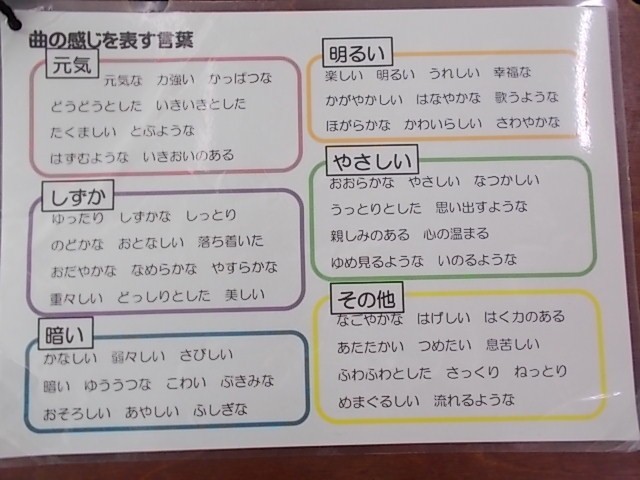 曲の感じを表す言葉
元気
元気な 力強い かっぱつな
どうどうとした いきいきとした
たくましい とぶような
はずむような いきおいのある
しずか
ゆったり しずかな しっとり
のどかな おとなしい 落ち着いた
おだやかな なめらかな やすらかな
重々しい どっしりとした 美しい
暗い
かなしい 弱々しい さびしい
暗い ゆううつな こわい ぶきみな
おそろしい あやしい ふしぎな
明るい
楽しい 明るい うれしい 幸福な
かがやかしい はなやかな 歌うような
ほがらかな かわいらしい さわやかな
やさしい
おおらかな やさしい なつかしい
うっとりとした 思い出すような
親しみのある 心の温まる
ゆめ見るような いのるような
その他
なごやかな はげしい はく力のある
あたたかい つめたい 息苦しい
ふわふわとした さっくり ねっとり
めまぐるしい 流れるような